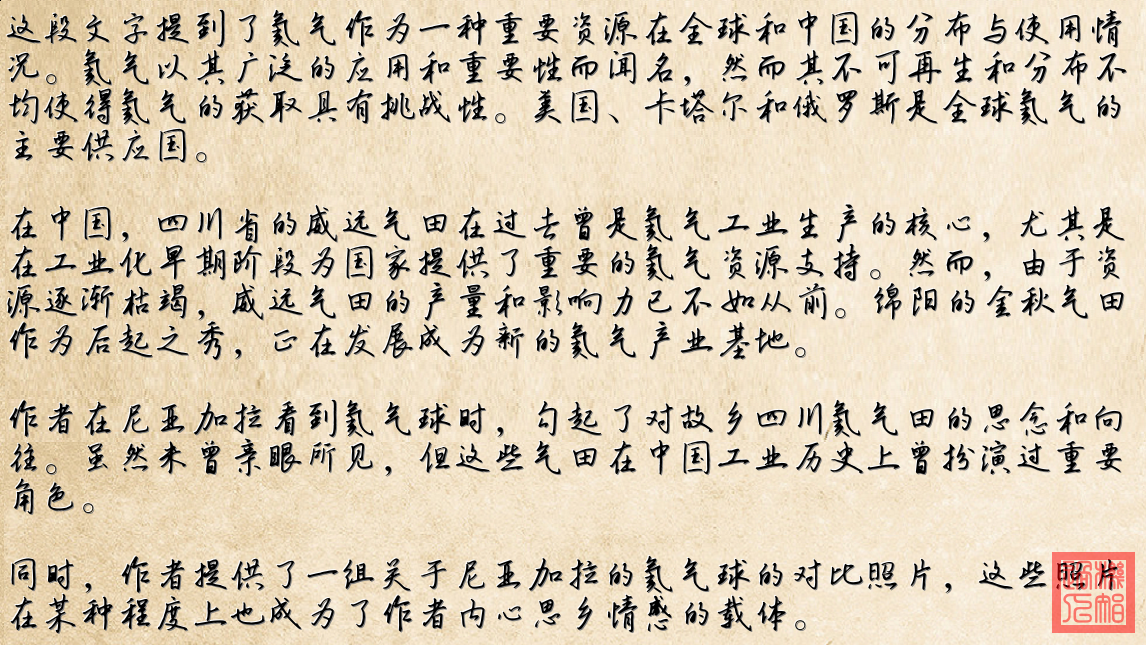 这段文字提到了氦气作为一种重要资源在全球和中国的分布与使用情
况。氦气以其广泛的应用和重要性而闻名，然而其不可再生和分布不
均使得氦气的获取具有挑战性。美国、卡塔尔和俄罗斯是全球氦气的
主要供应国。
在中国，四川省的威远气田在过去曾是氦气工业生产的核心，尤其是
在工业化早期阶段为国家提供了重要的氦气资源支持。然而，由于资
源逐渐枯竭，威远气田的产量和影响力已不如从前。绵阳的金秋气田
作为后起之秀，正在发展成为新的氦气产业基地。
作者在尼亚加拉看到氦气球时，勾起了对故乡四川氦气田的思念和向
往。虽然未曾亲眼所见，但这些气田在中国工业历史上曾扮演过重要
角色。
同时，作者提供了一组关于尼亚加拉的氦气球的对比照片，这些照片
在某种程度上也成为了作者内心思乡情感的载体。